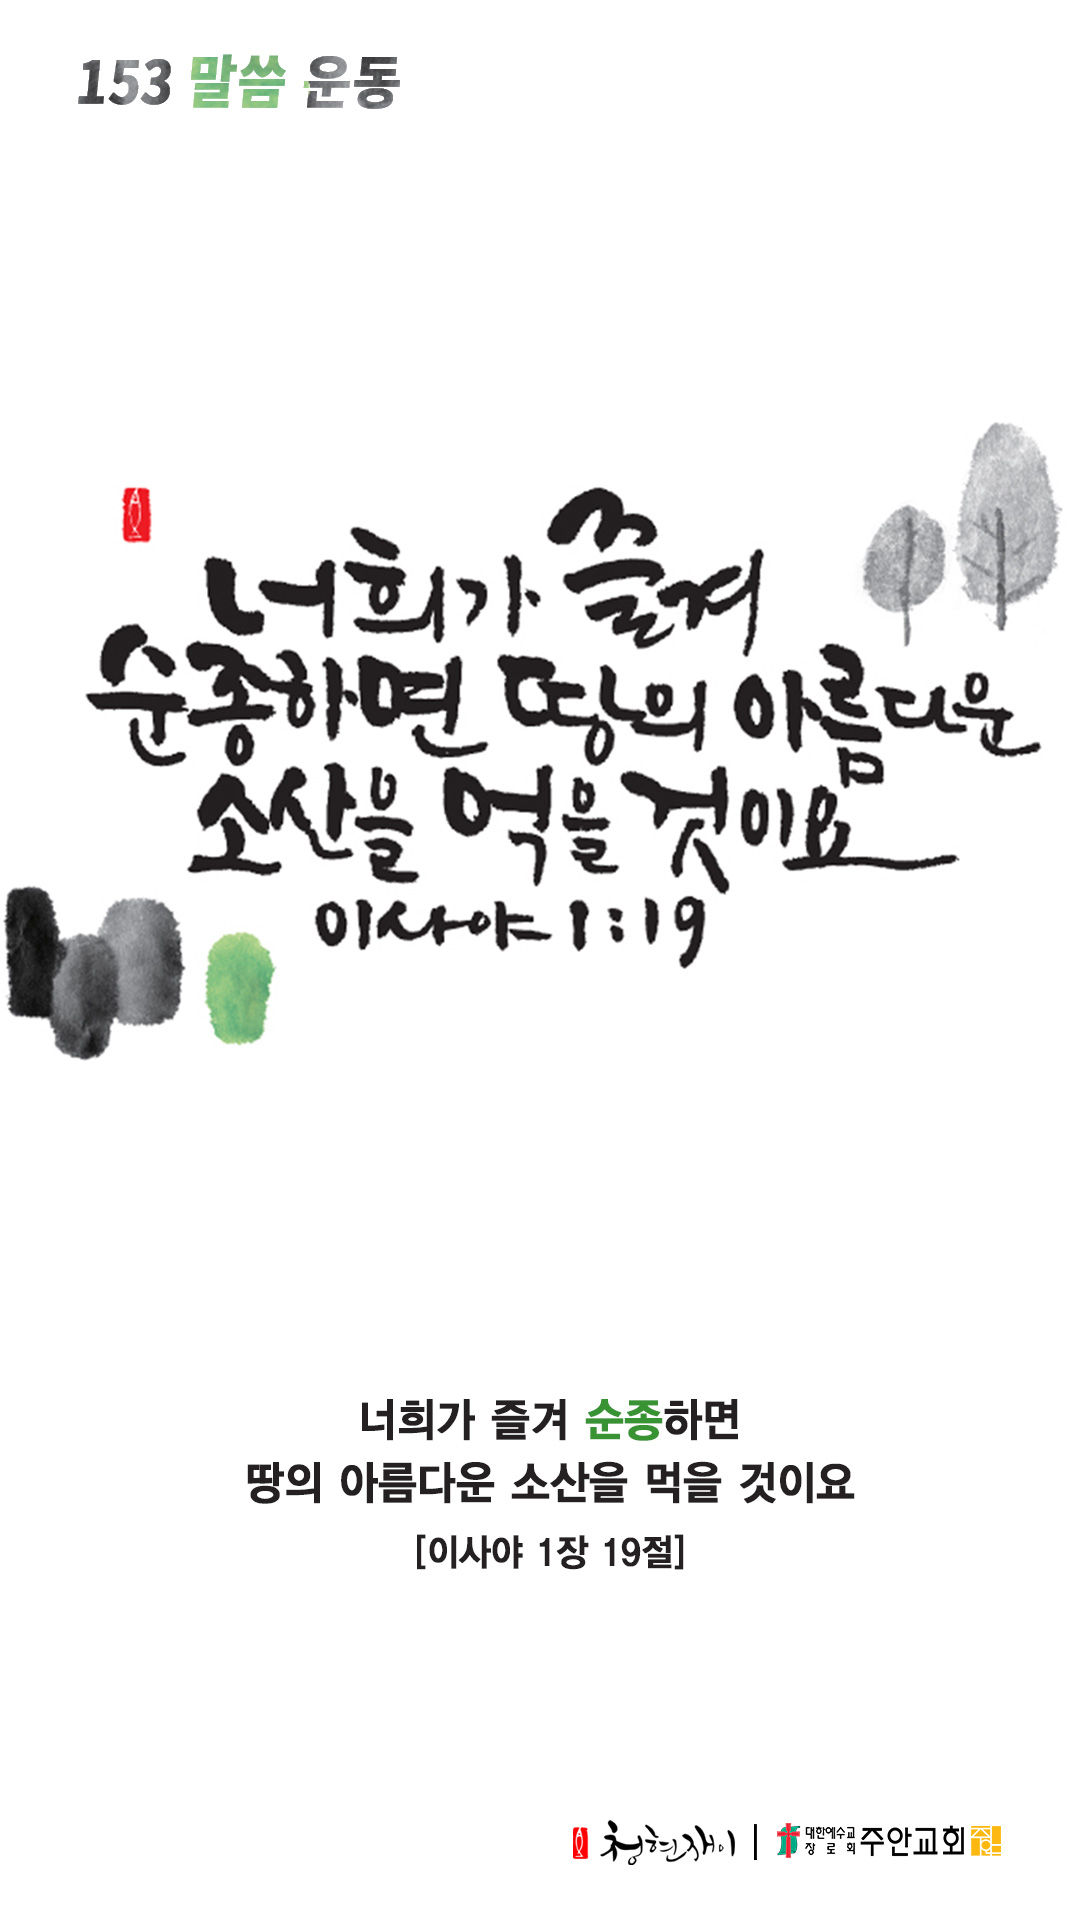 153 말씀 운동
너희가 즐겨
순종하면 땅의 아름다운
소산을 먹을 것이요
이사야 1:19
너희가 즐겨 순종하면
땅의 아름다운 소산을 먹을 것이요
[이사야 1장 19절]
청현재이 | 대한예수교장로회 주안교회